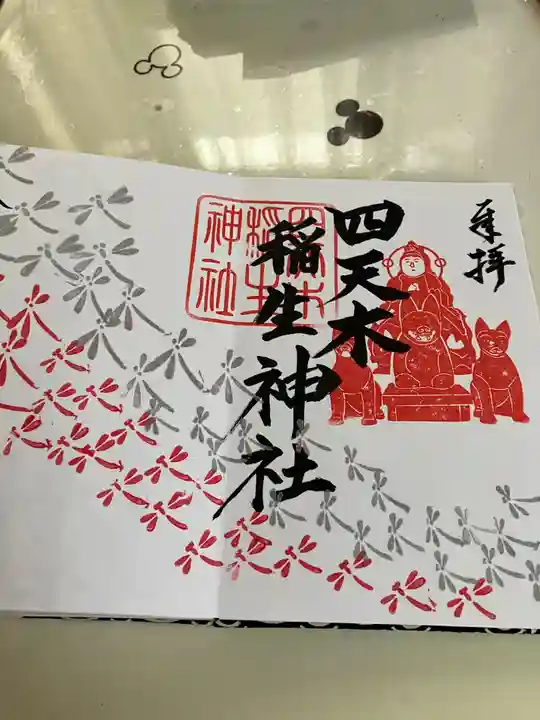 奉拝
四天木
稲生神社
四天木
稲生
神社